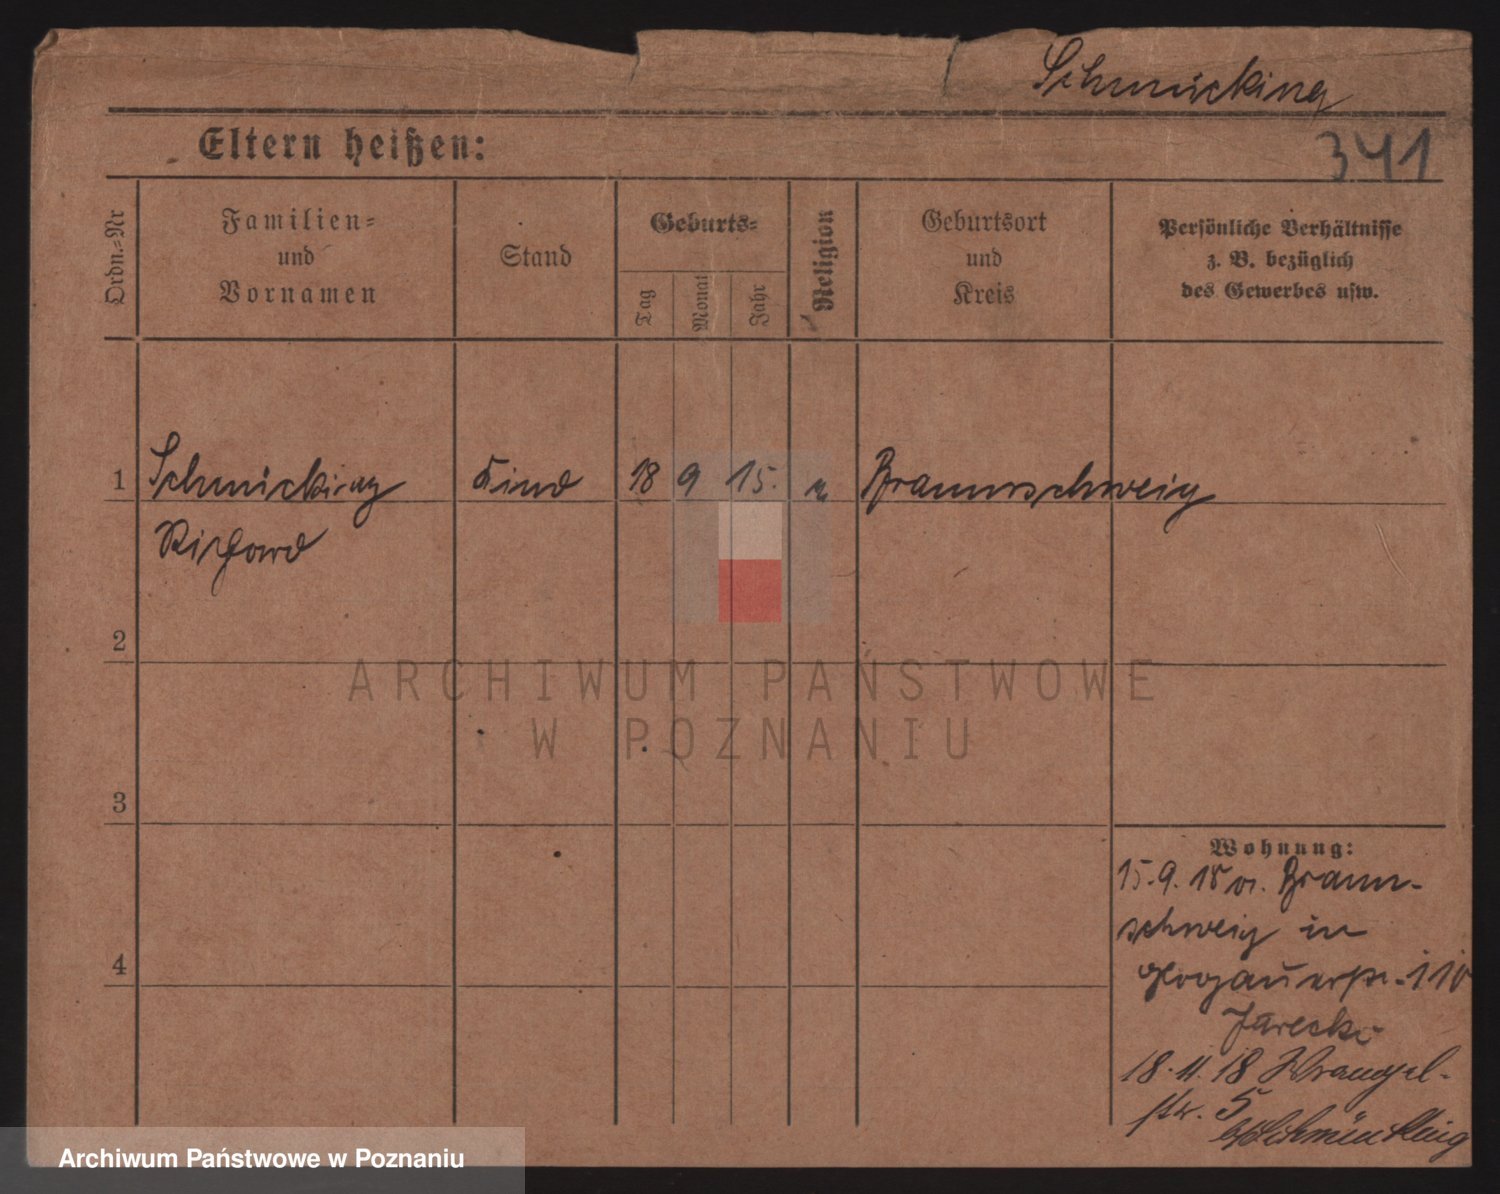 Schmicking
Eltern heißen:
341
Ordn.=Nr
Familien=
und
Vornamen
Stand
Geburts=
Tag
Monat
Jahr
Religion
Geburtsort
und
Kreis
Persönliche Verhältnisse
z. B. bezüglich
des Gewerbes usw.
1 Schmicking Kind 18 9 15. Braunschweig
Richard
2
3
4
Wohnung:
15.9.18 v. Braun-
schweig in
Glogauerstr. 110
Jarecki
18.11.18 Wrangel-
str. 5
b/Schmücking
ARCHIWUM PAŃSTWOWE
W POZNANIU
Archiwum Państwowe w Poznaniu